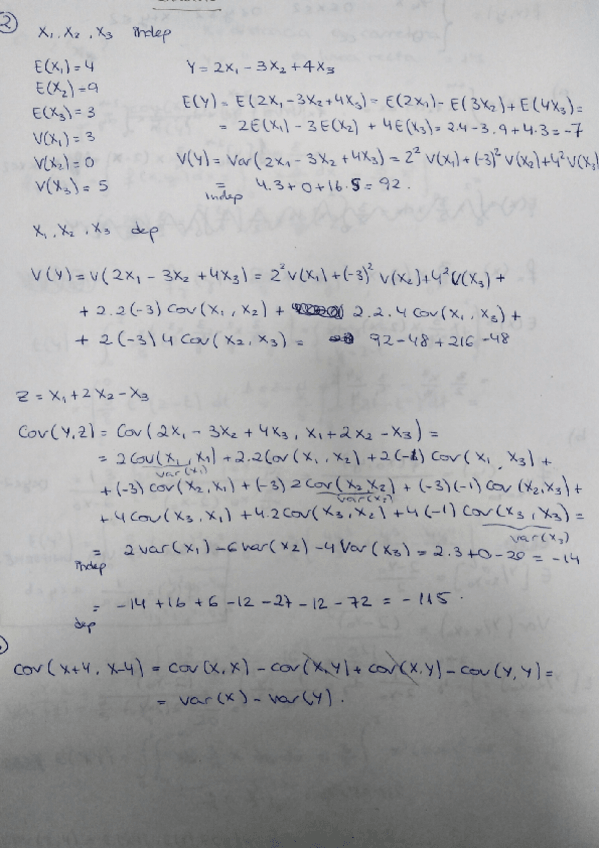 2
X₁, X₂, X₃ indep
E(X₁)=4
Y = 2X₁ - 3X₂ + 4X₃
E(X₂)=9
E(X₃)=3
E(Y) = E(2X₁ - 3X₂ + 4X₃) = E(2X₁) - E(3X₂) + E(4X₃) =
V(X₁)=3
= 2E(X₁) - 3E(X₂) + 4E(X₃) = 2.4 - 3.9 + 4.3 = -7
V(X₂)=0
V(Y) = Var(2X₁ - 3X₂ + 4X₃) = 2² V(X₁) + (-3)² V(X₂) + 4² V(X₃)
V(X₃)=5
= 4.3 + 0 + 16.5 = 92.
indep
X₁, X₂, X₃ dep
V(Y) = V(2X₁ - 3X₂ + 4X₃) = 2² V(X₁) + (-3)² V(X₂) + 4² V(X₃) +
+ 2.2(-3) Cov(X₁, X₂) + 2.2.4 Cov(X₁, X₃) +
+ 2(-3)4 Cov(X₂, X₃) = 92 - 48 + 216 - 48
Z = X₁ + 2X₂ - X₃
Cov(Y,Z) = Cov(2X₁ - 3X₂ + 4X₃, X₁ + 2X₂ - X₃) =
= 2Cov(X₁, X₁) + 2.2Cov(X₁, X₂) + 2(-1) Cov(X₁, X₃) +
Var(X₁)
+ (-3) Cov(X₂, X₁) + (-3) 2 Cov(X₂ X₂) + (-3)(-1) Cov(X₂, X₃) +
Var(X₂)
+ 4 Cov(X₃, X₁) + 4.2 Cov(X₃, X₂) + 4(-1) Cov(X₃, X₃) =
Var(X₃)
= 2Var(X₁) - 6 Var(X₂) - 4 Var(X₃) = 2.3 + 0 - 20 = -14
indep
= -14 + 16 + 6 - 12 - 27 - 12 - 72 = -115.
dep
Cov(X+Y, X-Y) = Cov(X,X) - Cov(X,Y) + Cov(X,Y) - Cov(Y,Y) =
= Var(X) - Var(Y).